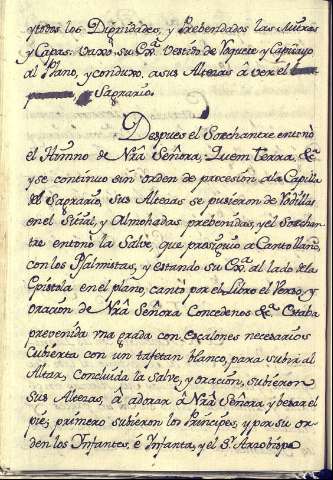 y todos los Dignidades, y Prebendados las Muzas
y Capas. Vaxo su Exª. vestido de Roquete y Capisayo
al Plano, y conduxo, a sus Altezas â ver el
Sagrario.
Despues el Sochantre entonò
el Himno de Nrâ Señora, Quem terra, &ª
y se continuò sin orden de procesion, a la Capilla
del Sagrario, Sus Altezas se pusieron de rodillas
en el Sitial, y Almohadas prebenidas, y el Sochan-
tre entonò la Salve, que prosiguio a Canto llano,
con los Psalmistas, y estando su Exª. al lado dela
Epistola en el plano, cantò por el Libro el Verso, y
oracion de Nrâ Señora Concedenos &ª. Estaba
prevenida vna grada con escalones necesarios
cubierta con un tafetan blanco, para subir al
Altar, concluida la Salve, y oracion, subieron
sus Altezas, â adorar â Nrâ Señora y besar el
pie, primero subieron los Principes, y por su or-
den los Infantes, è Infanta, y el Sr. Arzobispo